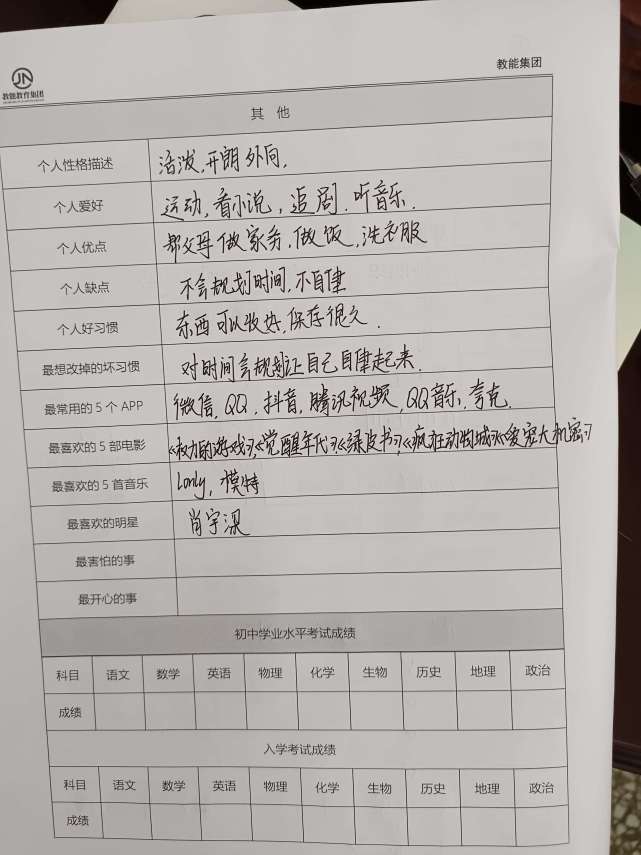 教能教育集团
教能集团
其 他
个人性格描述 活泼,开朗 外向,
个人爱好 运动,看小说,追剧.听音乐.
个人优点 帮父母做家务,做饭,洗衣服
个人缺点 不会规划时间,不自律
个人好习惯 东西可以收好,保存很久.
最想改掉的坏习惯 对时间会规划让自己自律起来.
最常用的 5 个 APP 微信,QQ,抖音,腾讯视频,QQ音乐.夸克.
最喜欢的 5 部电影 《权力的游戏》,《觉醒年代》《绿皮书》,《疯狂动物城》《爱宠大机密》
最喜欢的 5 首音乐 lonly,模特
最喜欢的明星 肖宇梁
最害怕的事
最开心的事
初中学业水平考试成绩
科目 语文 数学 英语 物理 化学 生物 历史 地理 政治
成绩
入学考试成绩
科目 语文 数学 英语 物理 化学 生物 历史 地理 政治
成绩